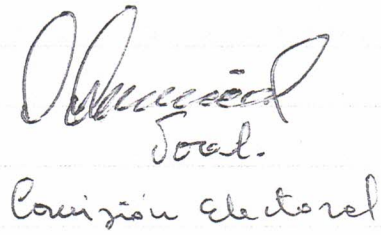 Vocal.
Comisión Electoral